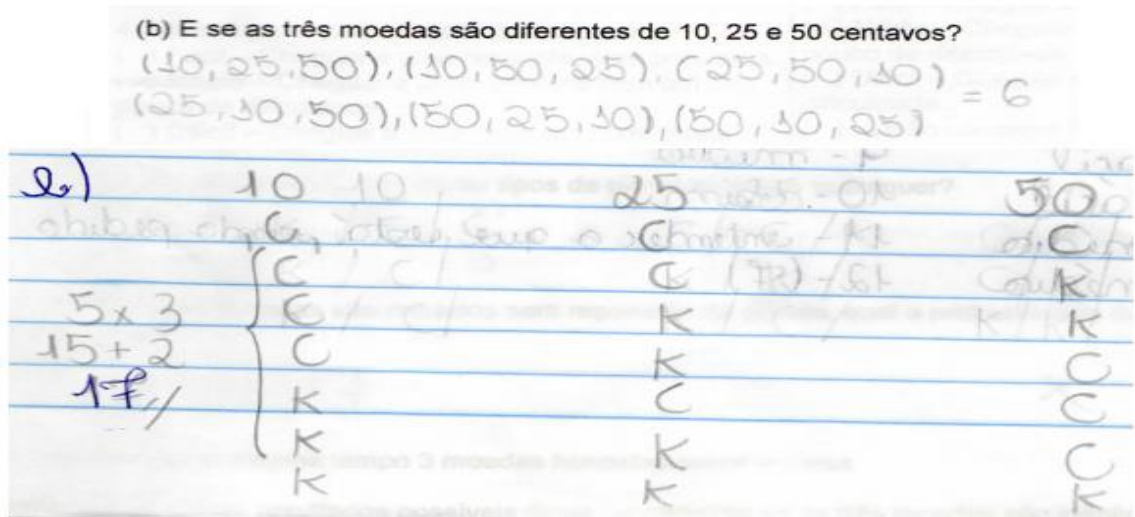 (b) E se as três moedas são diferentes de 10, 25 e 50 centavos?
(10, 25, 50), (10, 50, 25), (25, 50, 10)
(25, 10, 50), (50, 25, 10), (50, 10, 25) = 6
b) 10 25 50
C C C
C C K
5 x 3 C K K
15 + 2 C K C
17 // K C C
K K C
K K K